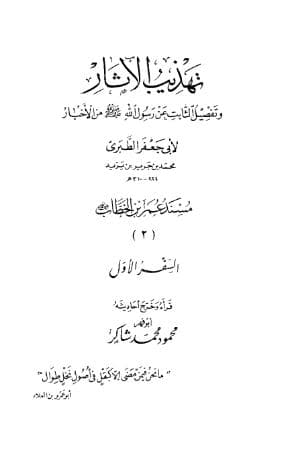 تهذيب الآثار
وتفصيل الثابت عن رسول الله ﷺ من الأخبار
لأبي جعفر الطبرى
محمد بن جرير بن يزيد
٢٢٤ - ٣١٠ هـ
مسند عمر بن الخطاب
(٣)
السفر الأول
قرأه وخرج أحاديثه
أبو فهر
محمود محمد شاكر
" ما نحن فيمن مضى إلا كبقل في أصول نخل طوال "
أبو عمرو بن العلاء